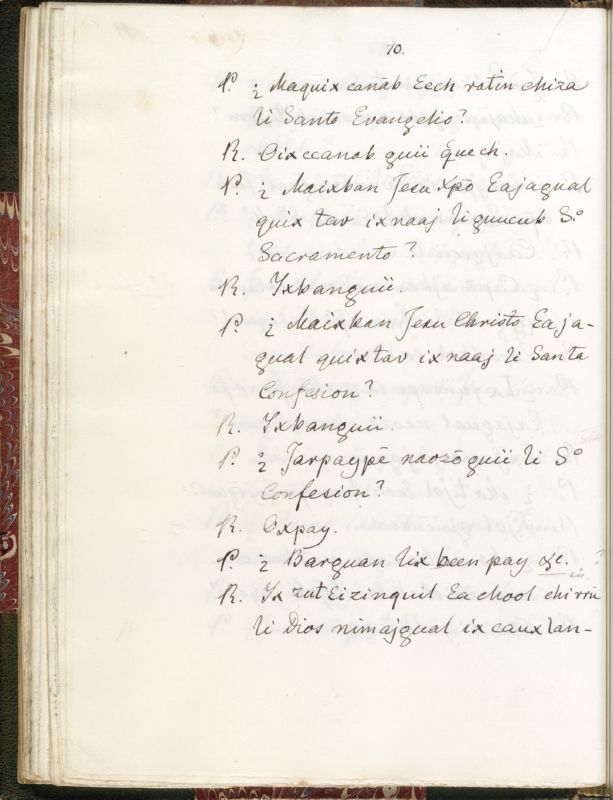 10.
P. ¿ Maquix canab Eech ratin chiza
li Santo Evangelio?
R. Oixccanab guii Quech.
P. ¿ Maixban Jesu Xpō Eajagual
quix tav ixnaaj li guucub Sº
Sacramento?
R. Yxbanguii.
P. ¿ Maixban Jesu Christo Eaja-
gual quix tav ixnaaj li Santa
Confesion?
R. Yxbanguii.
P. ¿ Jarpaypē naozō guii li Sº
Confesion?
R. Oxpay.
P. ¿ Barguan lix been pay &c. ?
R. Yx zut Eizinquil Ea chool chirrū
li Dios nimajgual ix caux lan-